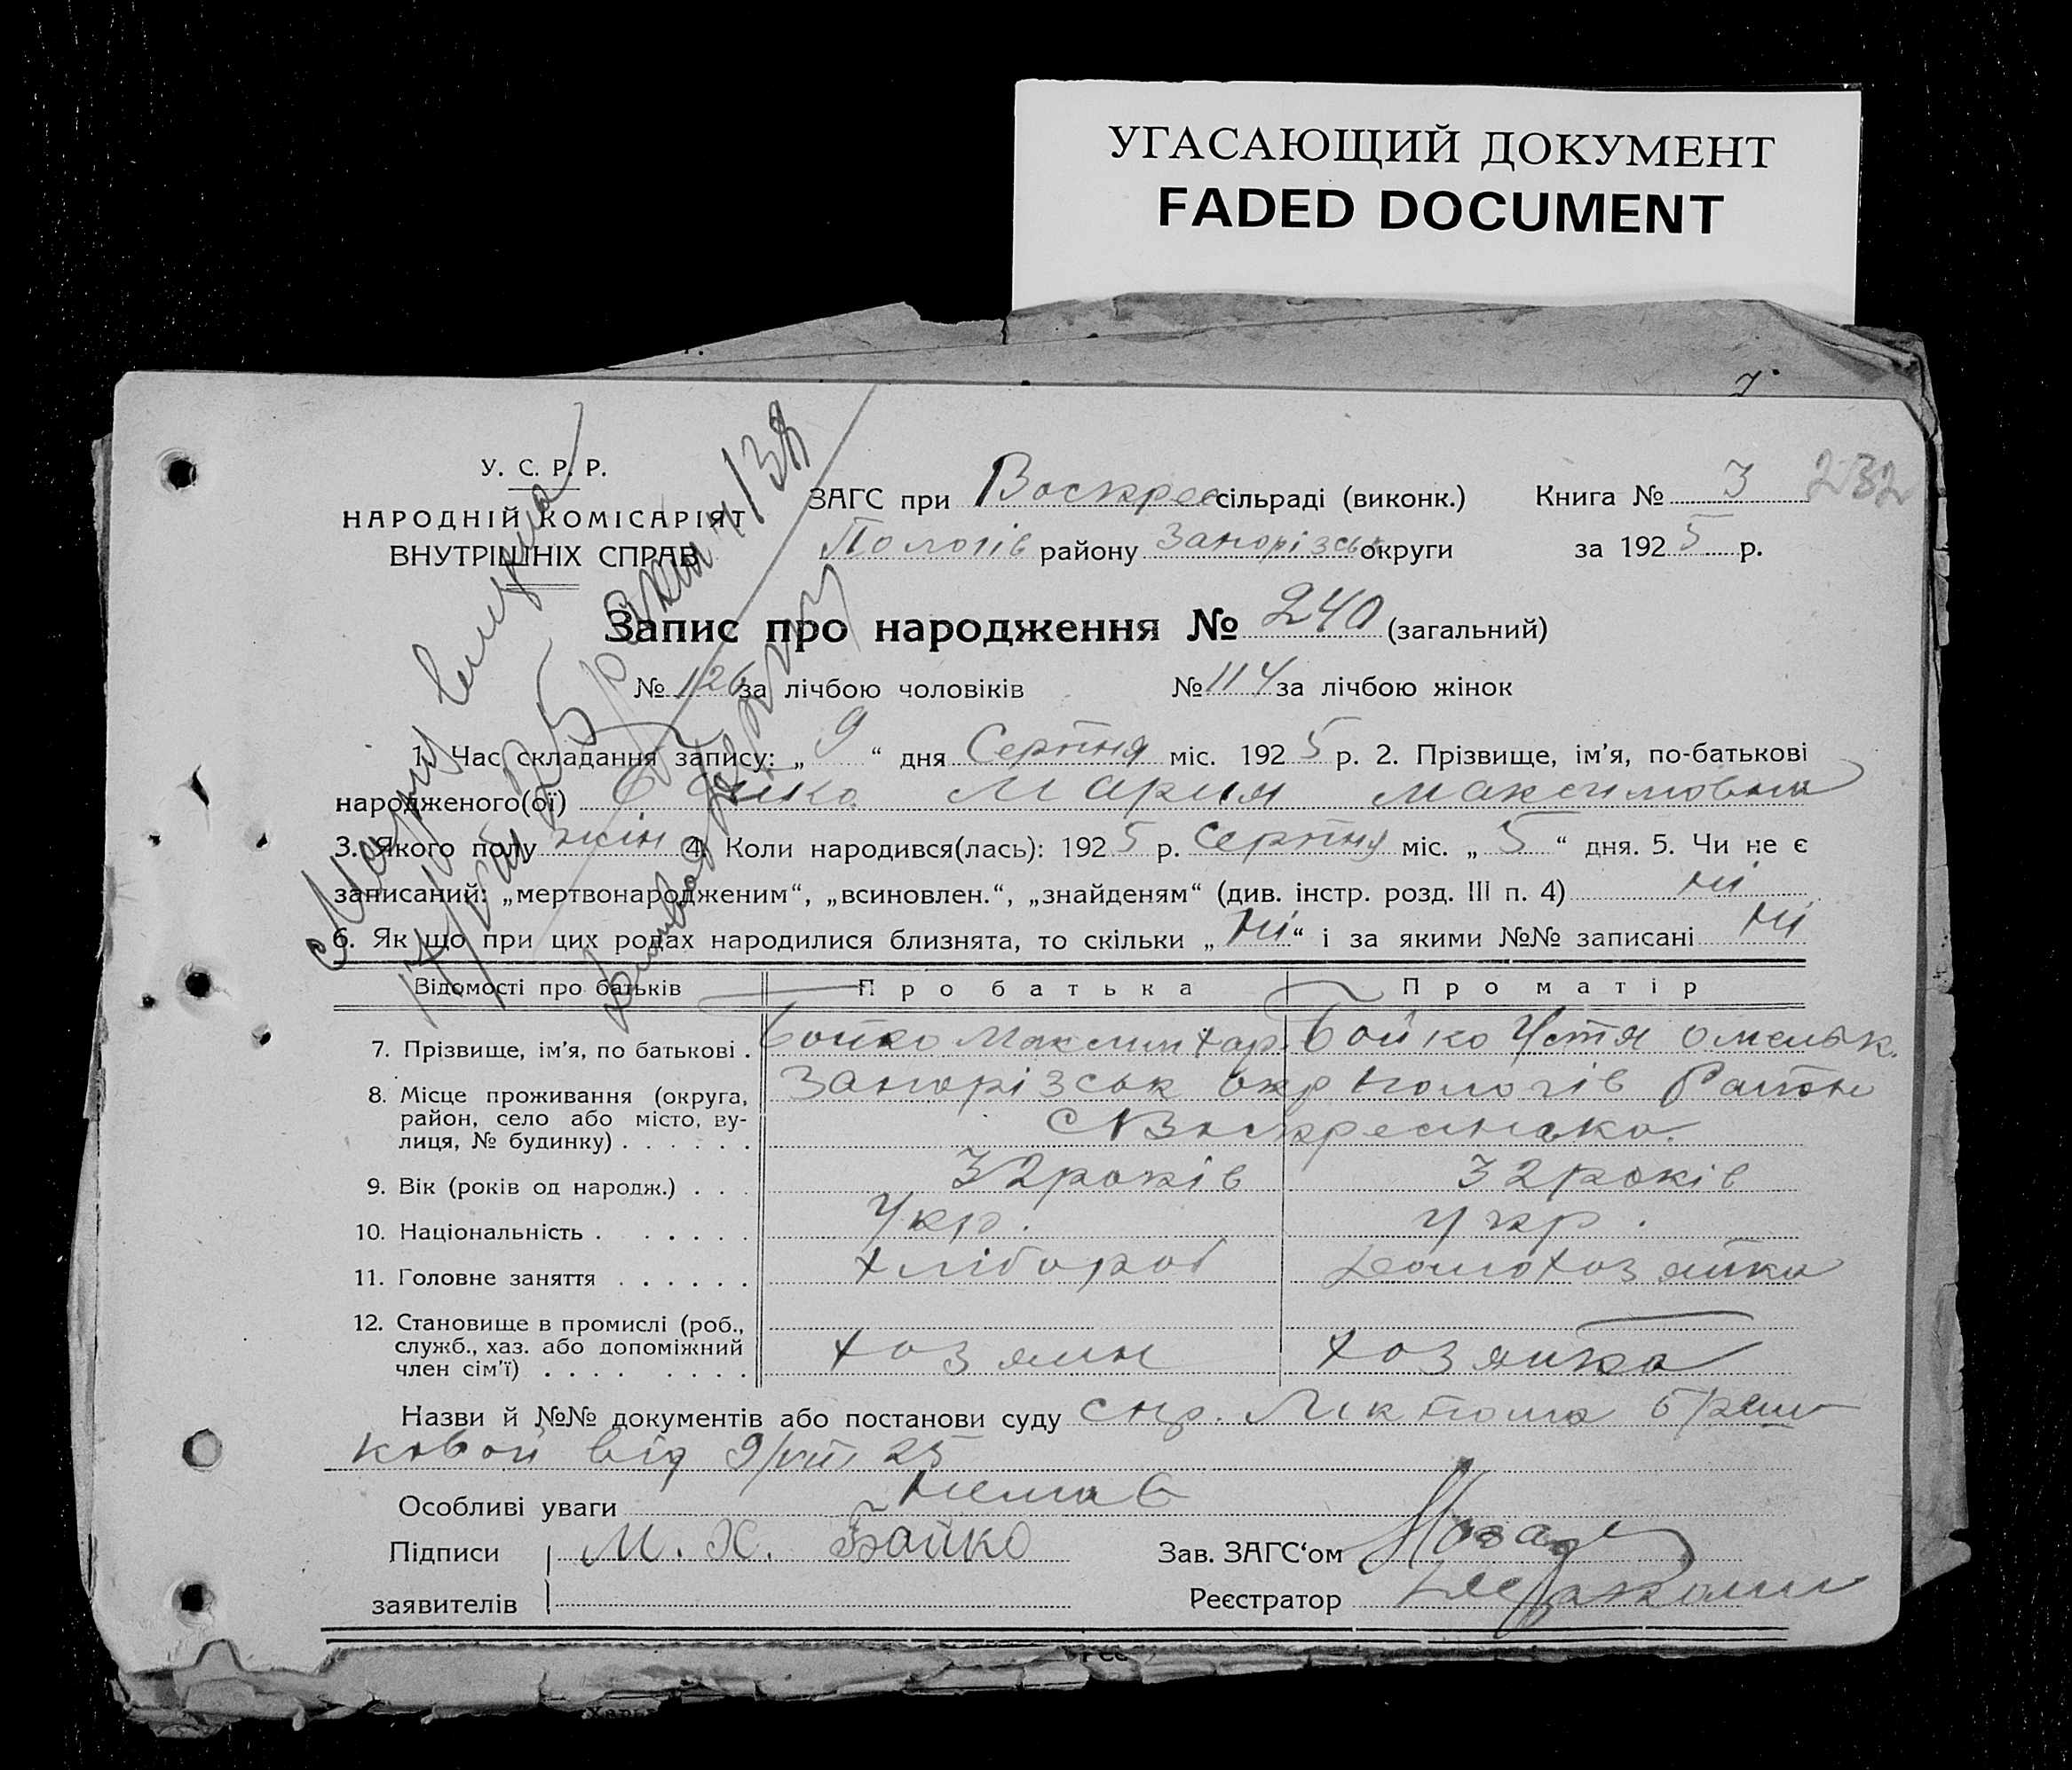 УГАСАЮЩИЙ ДОКУМЕНТ
FADED DOCUMENT
У. С. Р. Р.
НАРОДНІЙ КОМІСАРІЯТ
ВНУТРІШНІХ СПРАВ
ЗАГС при Воскрес сільраді (виконк.) Книга № 3 232
Пологів району Запорізськ округи за 1925 р.
Запис про народження № 240 (загальний)
№ 126 за лічбою чоловіків № 114 за лічбою жінок
1. Час складання запису: „ 9 “ дня Серпня міс. 1925 р. 2. Прізвище, ім’я, по-батькові
народженого(ої) Бойко Мария Максимовна
3. Якого полу жін 4. Коли народився(лась): 1925 р. Серпня міс. „ 5 “ дня. 5. Чи не є
записаний: „мертвонародженим“, „всиновлен.“, „знайденям“ (див. інстр. розд. III п. 4) ні
6. Як що при цих родах народилися близнята, то скільки „ ні “ і за якими №№ записані ні
Відомості про батьків Про батька Про матір
7. Прізвище, ім’я, по батькові . Бойко Максим Хар. Бойко Устя Омельк.
8. Місце проживання (округа, район, село або місто, ву-
лиця, № будинку) . . . . . . Запорізськ окр Пологів Район
с Воскресенська.
9. Вік (років од народж.) . . . 32 років 32 років
10. Національність . . . . . . Укр. Укр.
11. Головне заняття . . . . . . хлібороб домохозяйка
12. Становище в промислі (роб.,
служб., хаз. або допоміжний
член сім’ї) . . . . . . . . хозяин хозяйка
Назви й №№ документів або постанови суду
від 9/VIII 25
Особливі уваги немає
Підписи М. Х. Бойко Зав. ЗАГС‘ом
заявителів Реєстратор